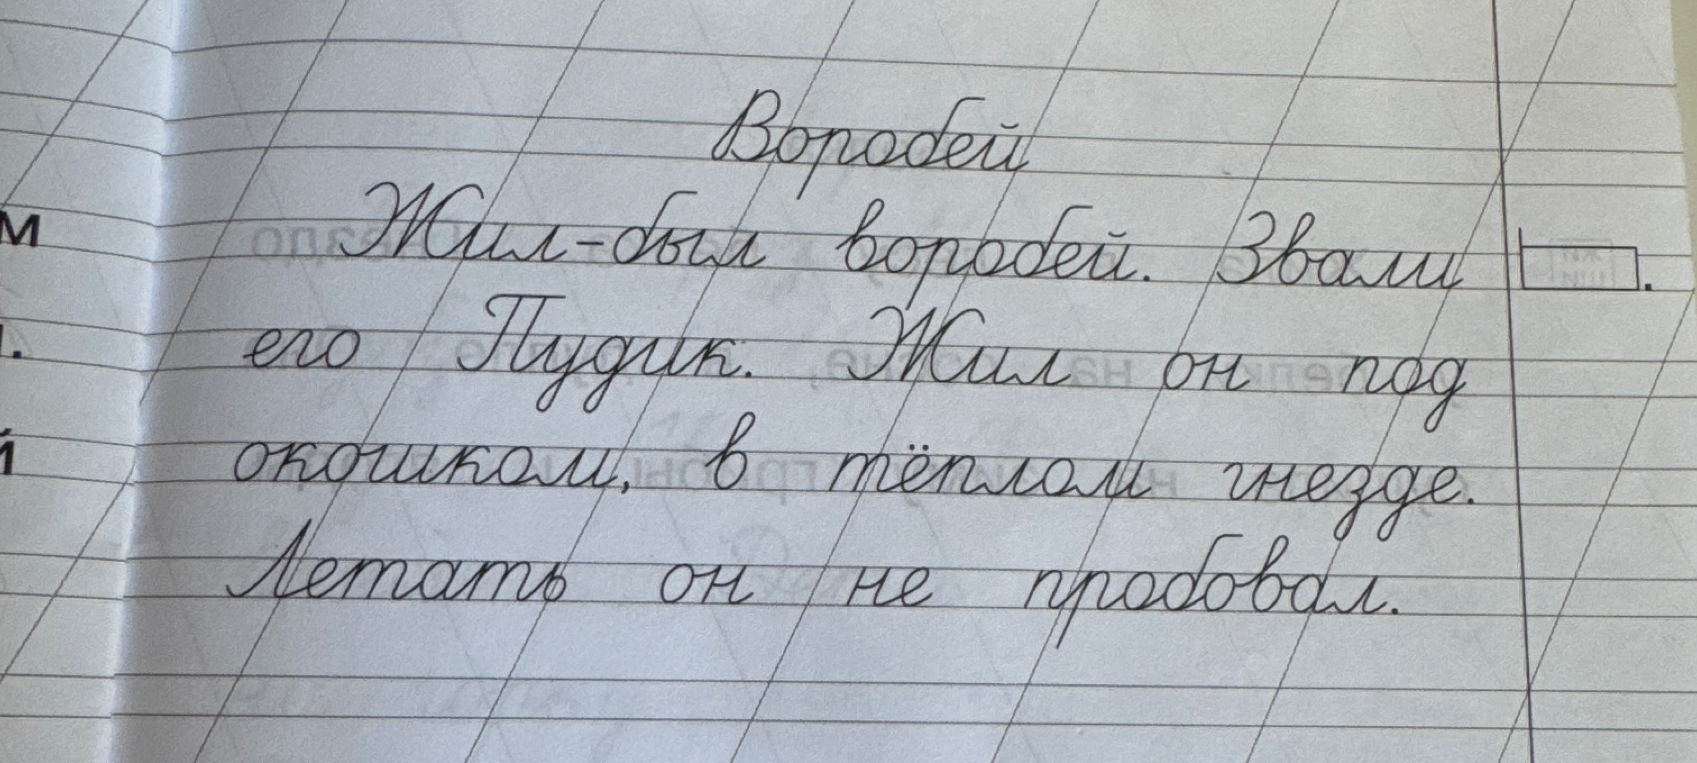 Воробей
Жил-был воробей. Звали
его Пудик. Жил он под
окошком, в тёплом гнезде.
Летать он не пробовал.
м
й